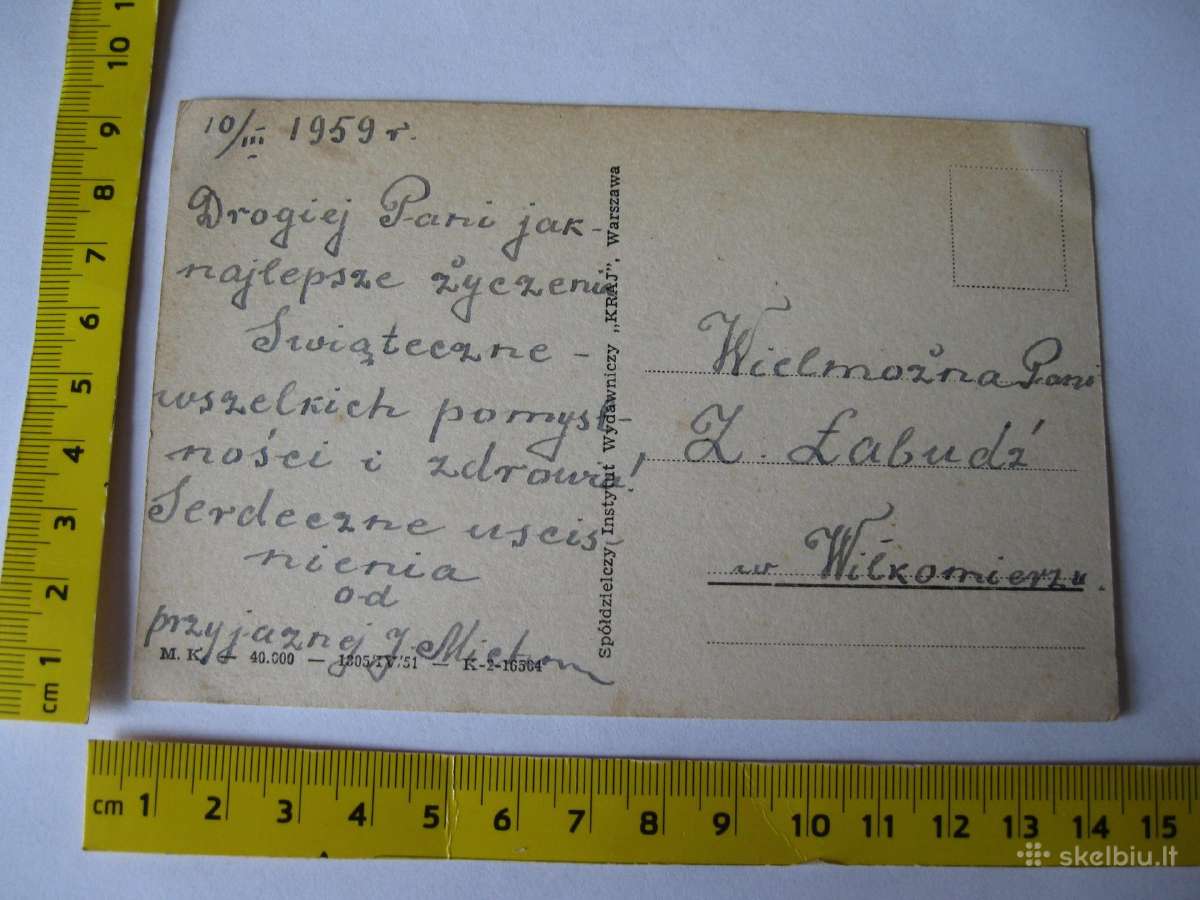 10/III 1959 r.
Drogiej Pani jak-
najlepsze życzenia
Swiąteczne -
wszelkich pomyśl-
ności i zdrowia!
Serdeczne uscis-
nienia
od
przyjaznej J.
M. K. — 40.000 — 1305/IV/51 — K-2-16564
Spółdzielczy Instytut Wydawniczy „KRAJ”, Warszawa
Wielmożna Pani
Z. Łabudź
w Wiłkomierzu.
cm 1 2 3 4 5 6 7 8 9 10 1
cm 1 2 3 4 5 6 7 8 9 10 11 12 13 14 15
skelbiu.lt